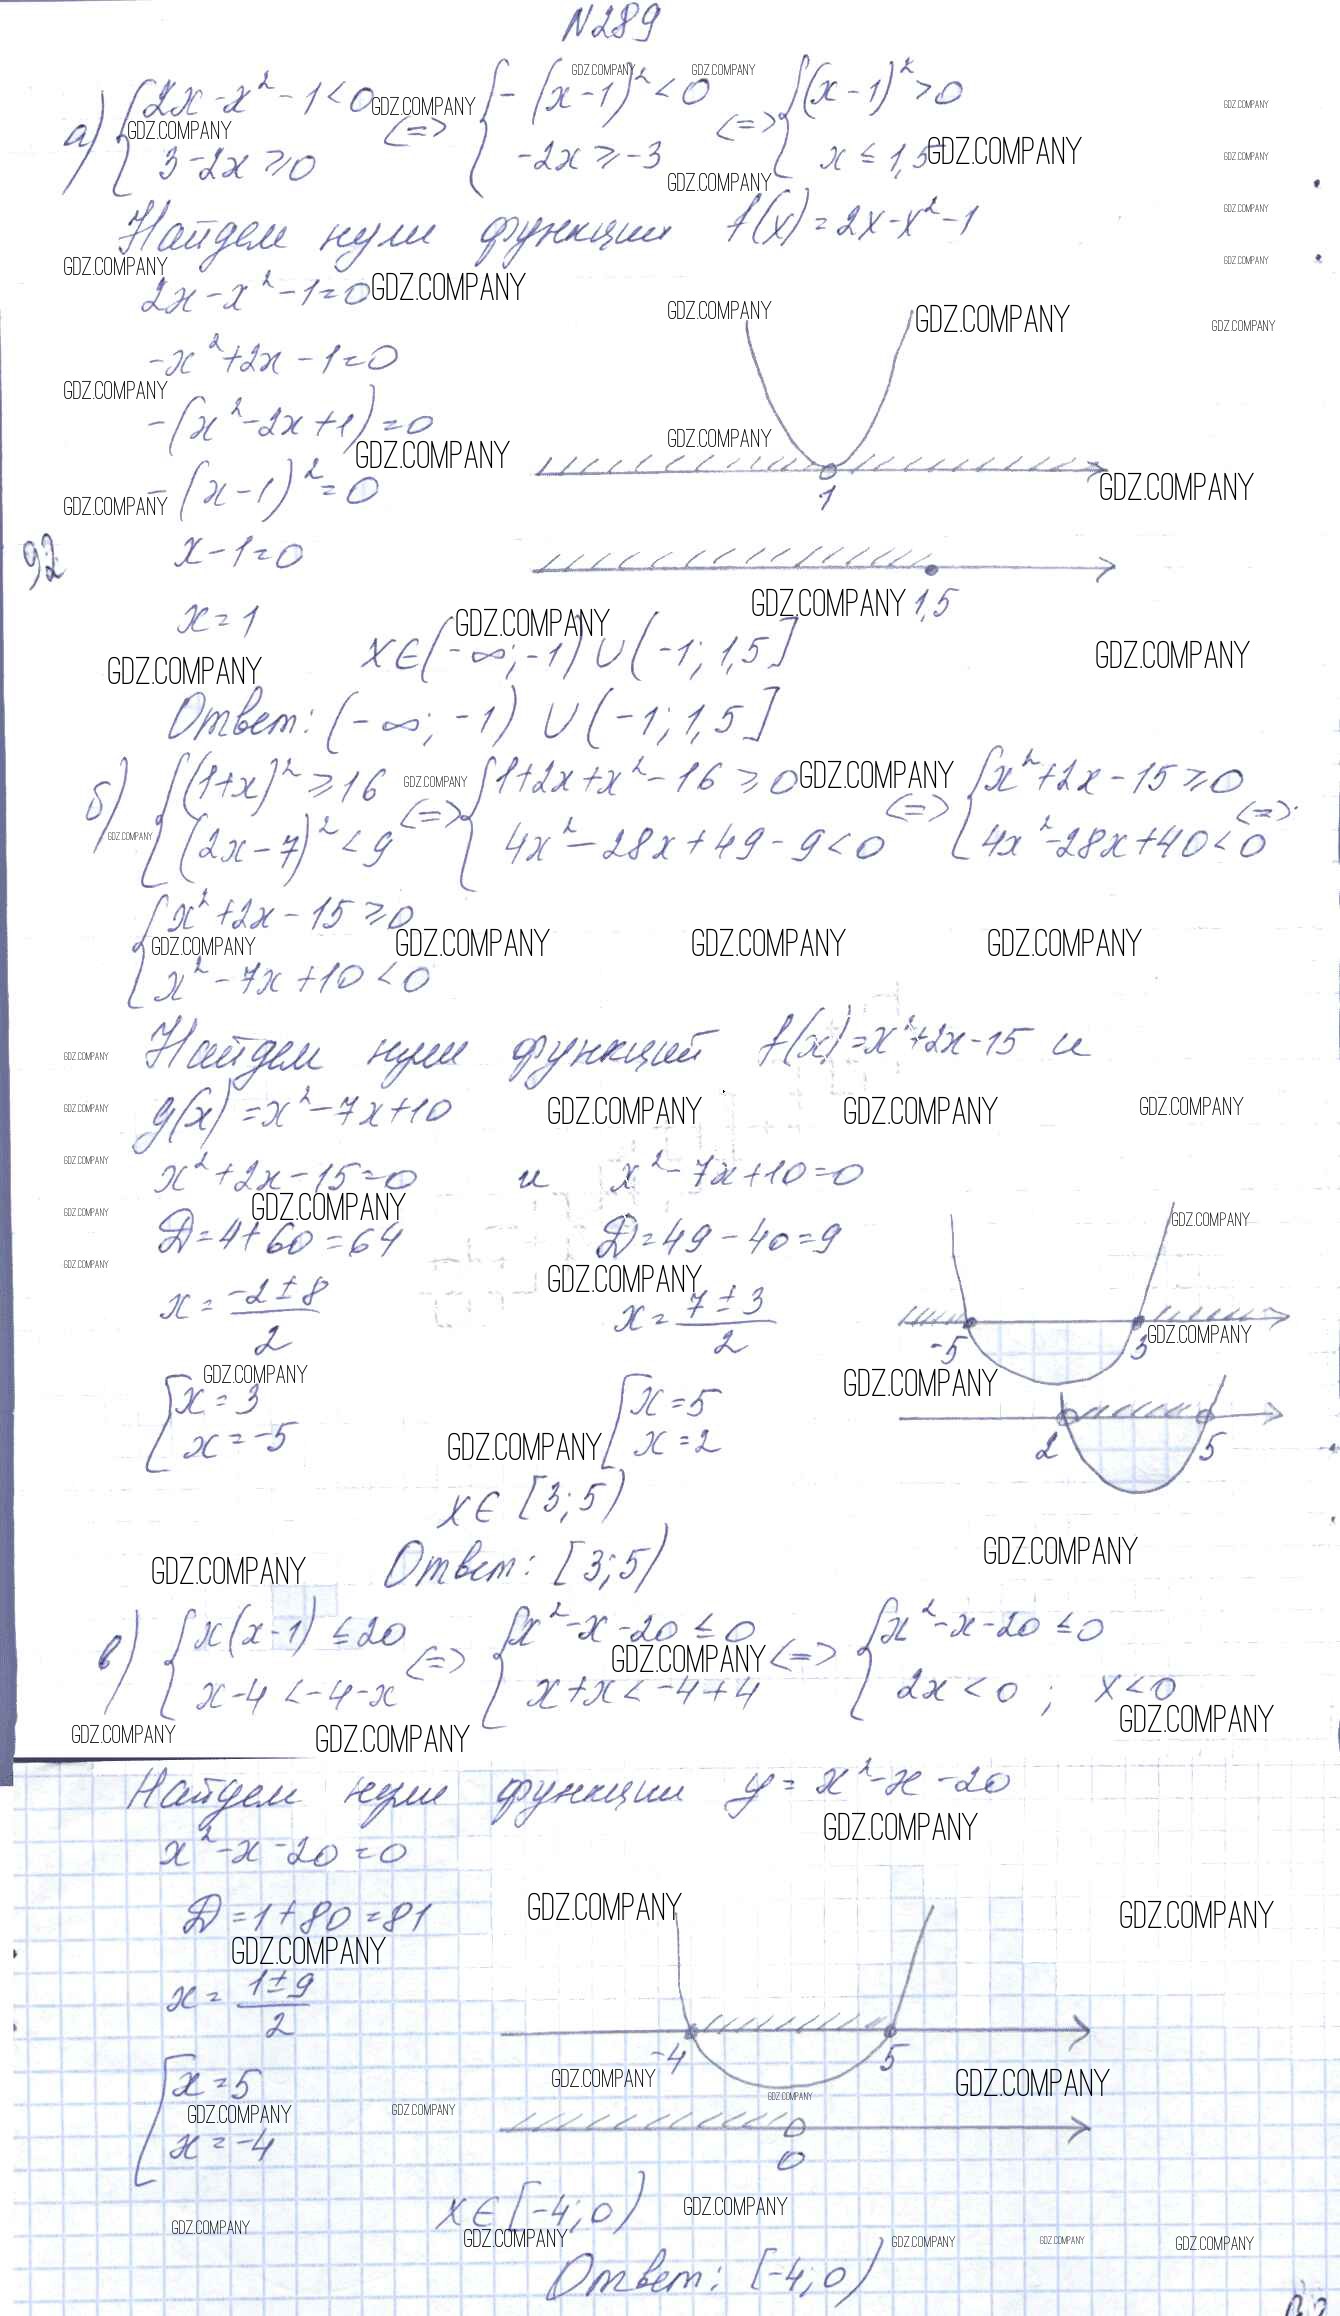 N289
а) {2x-x²-1<0 <=> {-(x-1)²<0 <=> {(x-1)²>0
3-2x≥0 -2x≥-3 x≤1,5
Найдем нули функции f(x)=2x-x²-1
2x-x²-1=0
-x²+2x-1=0
-(x²-2x+1)=0
-(x-1)²=0
1
92
x-1=0
1,5
x=1
x∈(-∞;-1)∪(-1;1,5]
Ответ: (-∞;-1)∪(-1;1,5]
б) {(1+x)²≥16 <=> {1+2x+x²-16≥0 <=> {x²+2x-15≥0 <=>
(2x-7)²<9 4x²-28x+49-9<0 4x²-28x+40<0
{x²+2x-15≥0
x²-7x+10<0
Найдем нули функций f(x)=x²+2x-15 и
g(x)=x²-7x+10
x²+2x-15=0 и x²-7x+10=0
D=4+60=64 D=49-40=9
x=(-2±8)/2 x=(7±3)/2
-5 3
[x=3 [x=5
x=-5 x=2
2 5
x∈[3;5)
Ответ: [3;5)
в) {x(x-1)≤20 <=> {x²-x-20≤0 <=> {x²-x-20≤0
x-4<-4-x x+x<-4+4 2x<0; x<0
Найдем нули функции y=x²-x-20
x²-x-20=0
D=1+80=81
x=(1±9)/2
-4 5
[x=5
x=-4
0
x∈[-4;0)
Ответ: [-4;0)
GDZ.COMPANY